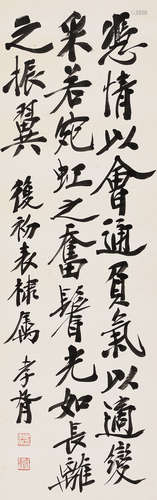 憑情以會通負氣以適變
采若宛虹之奮鬐光如長離
之振翼
復初表棣屬 孝胥